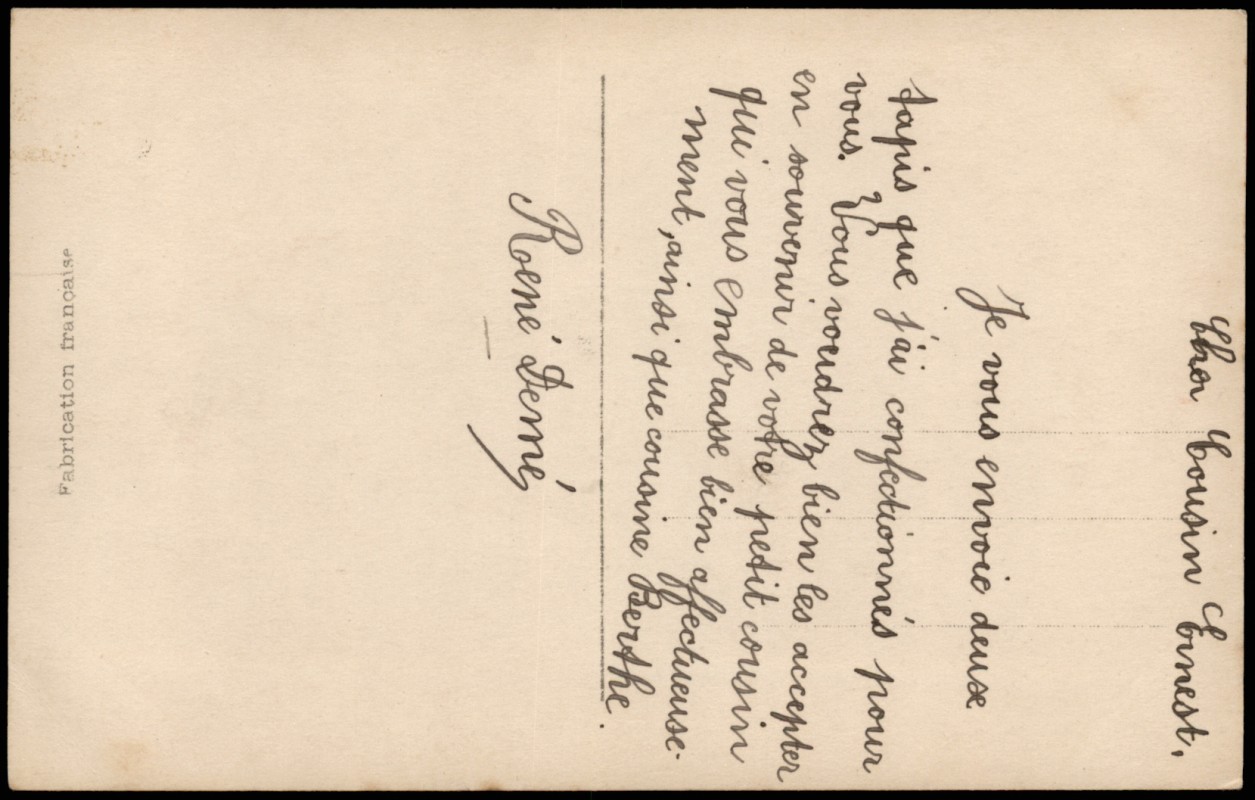 Cher Cousin Ernest,
Je vous envoie deux
tapis que j'ai confectionnés pour
vous. Vous voudrez bien les accepter
en souvenir de votre petit cousin
qui vous embrasse bien affectueuse-
ment, ainsi que cousine Berthe.
René Demé
Fabrication française